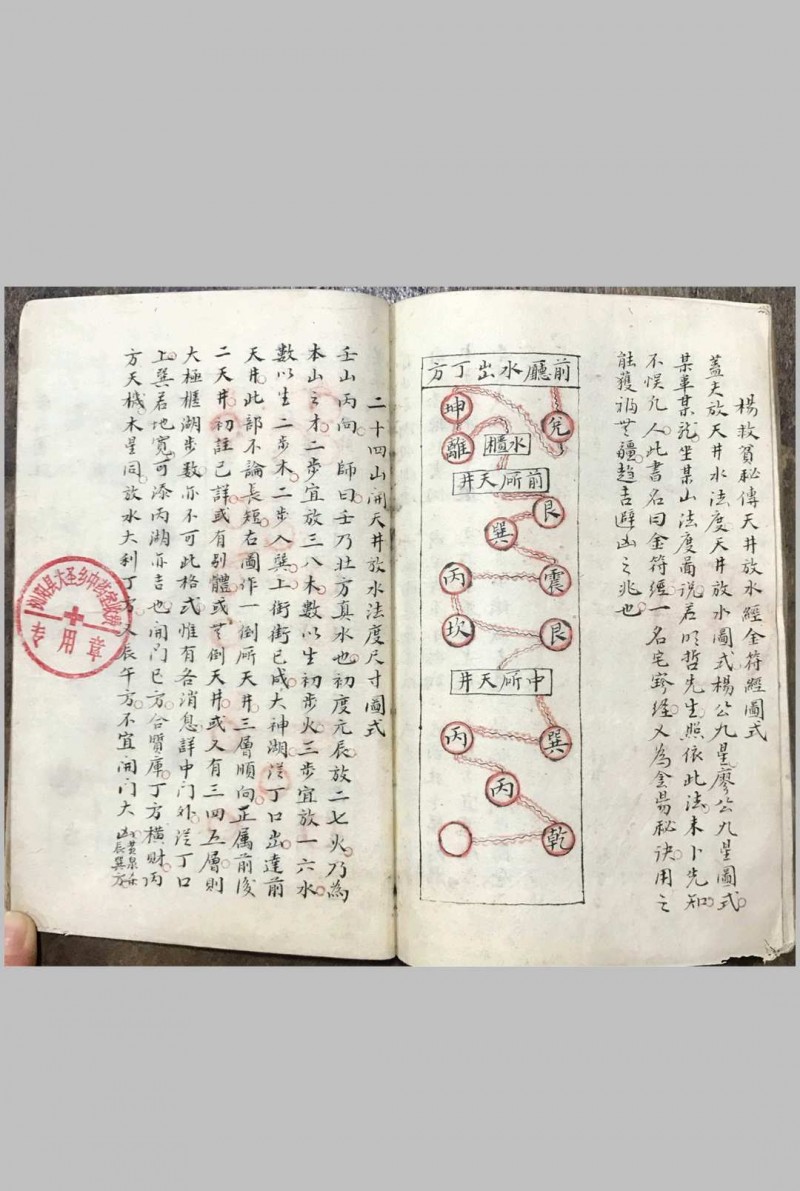 楊救貧秘傳天井放水經金符經圖式
蓋夫放天井水法度天井放水圖式楊公九星廖公九星圖式
某革某龍坐某山法度圖説若明哲先生照依此法未卜先知
不悮凡人此書名曰金符經一名宅寳經又為金昜秘訣用之
能獲福無疆趨吉避凶之兆也
前廳水出丁方
坤
兌
離
水櫃
前所天井
艮
巽
丙
震
坎
艮
中所天井
丙
巽
丙
乾
二十四山開天井放水法度尺寸圖式
壬山丙向 師曰壬乃壯方真水也初度元辰放二七火乃為
本山之才二步宜放三八木數以生初步火三步宜放一六水
數以生二步木二步入巽上街街已成大神湖從丁口出達前
天井此部不論長短右圖作一倒所天井三層順向正属前後
二天井初註已詳或有别體或無倒天井或又有三四五層則
大極櫃湖步數亦不可此格式惟有各消息詳中门外從丁口
上巽若地寬可添丙湖亦吉也開门巳方合寳庫丁方横財丙
方天機木星同放水大利丁方辰午方不宜開门大凶
專用章